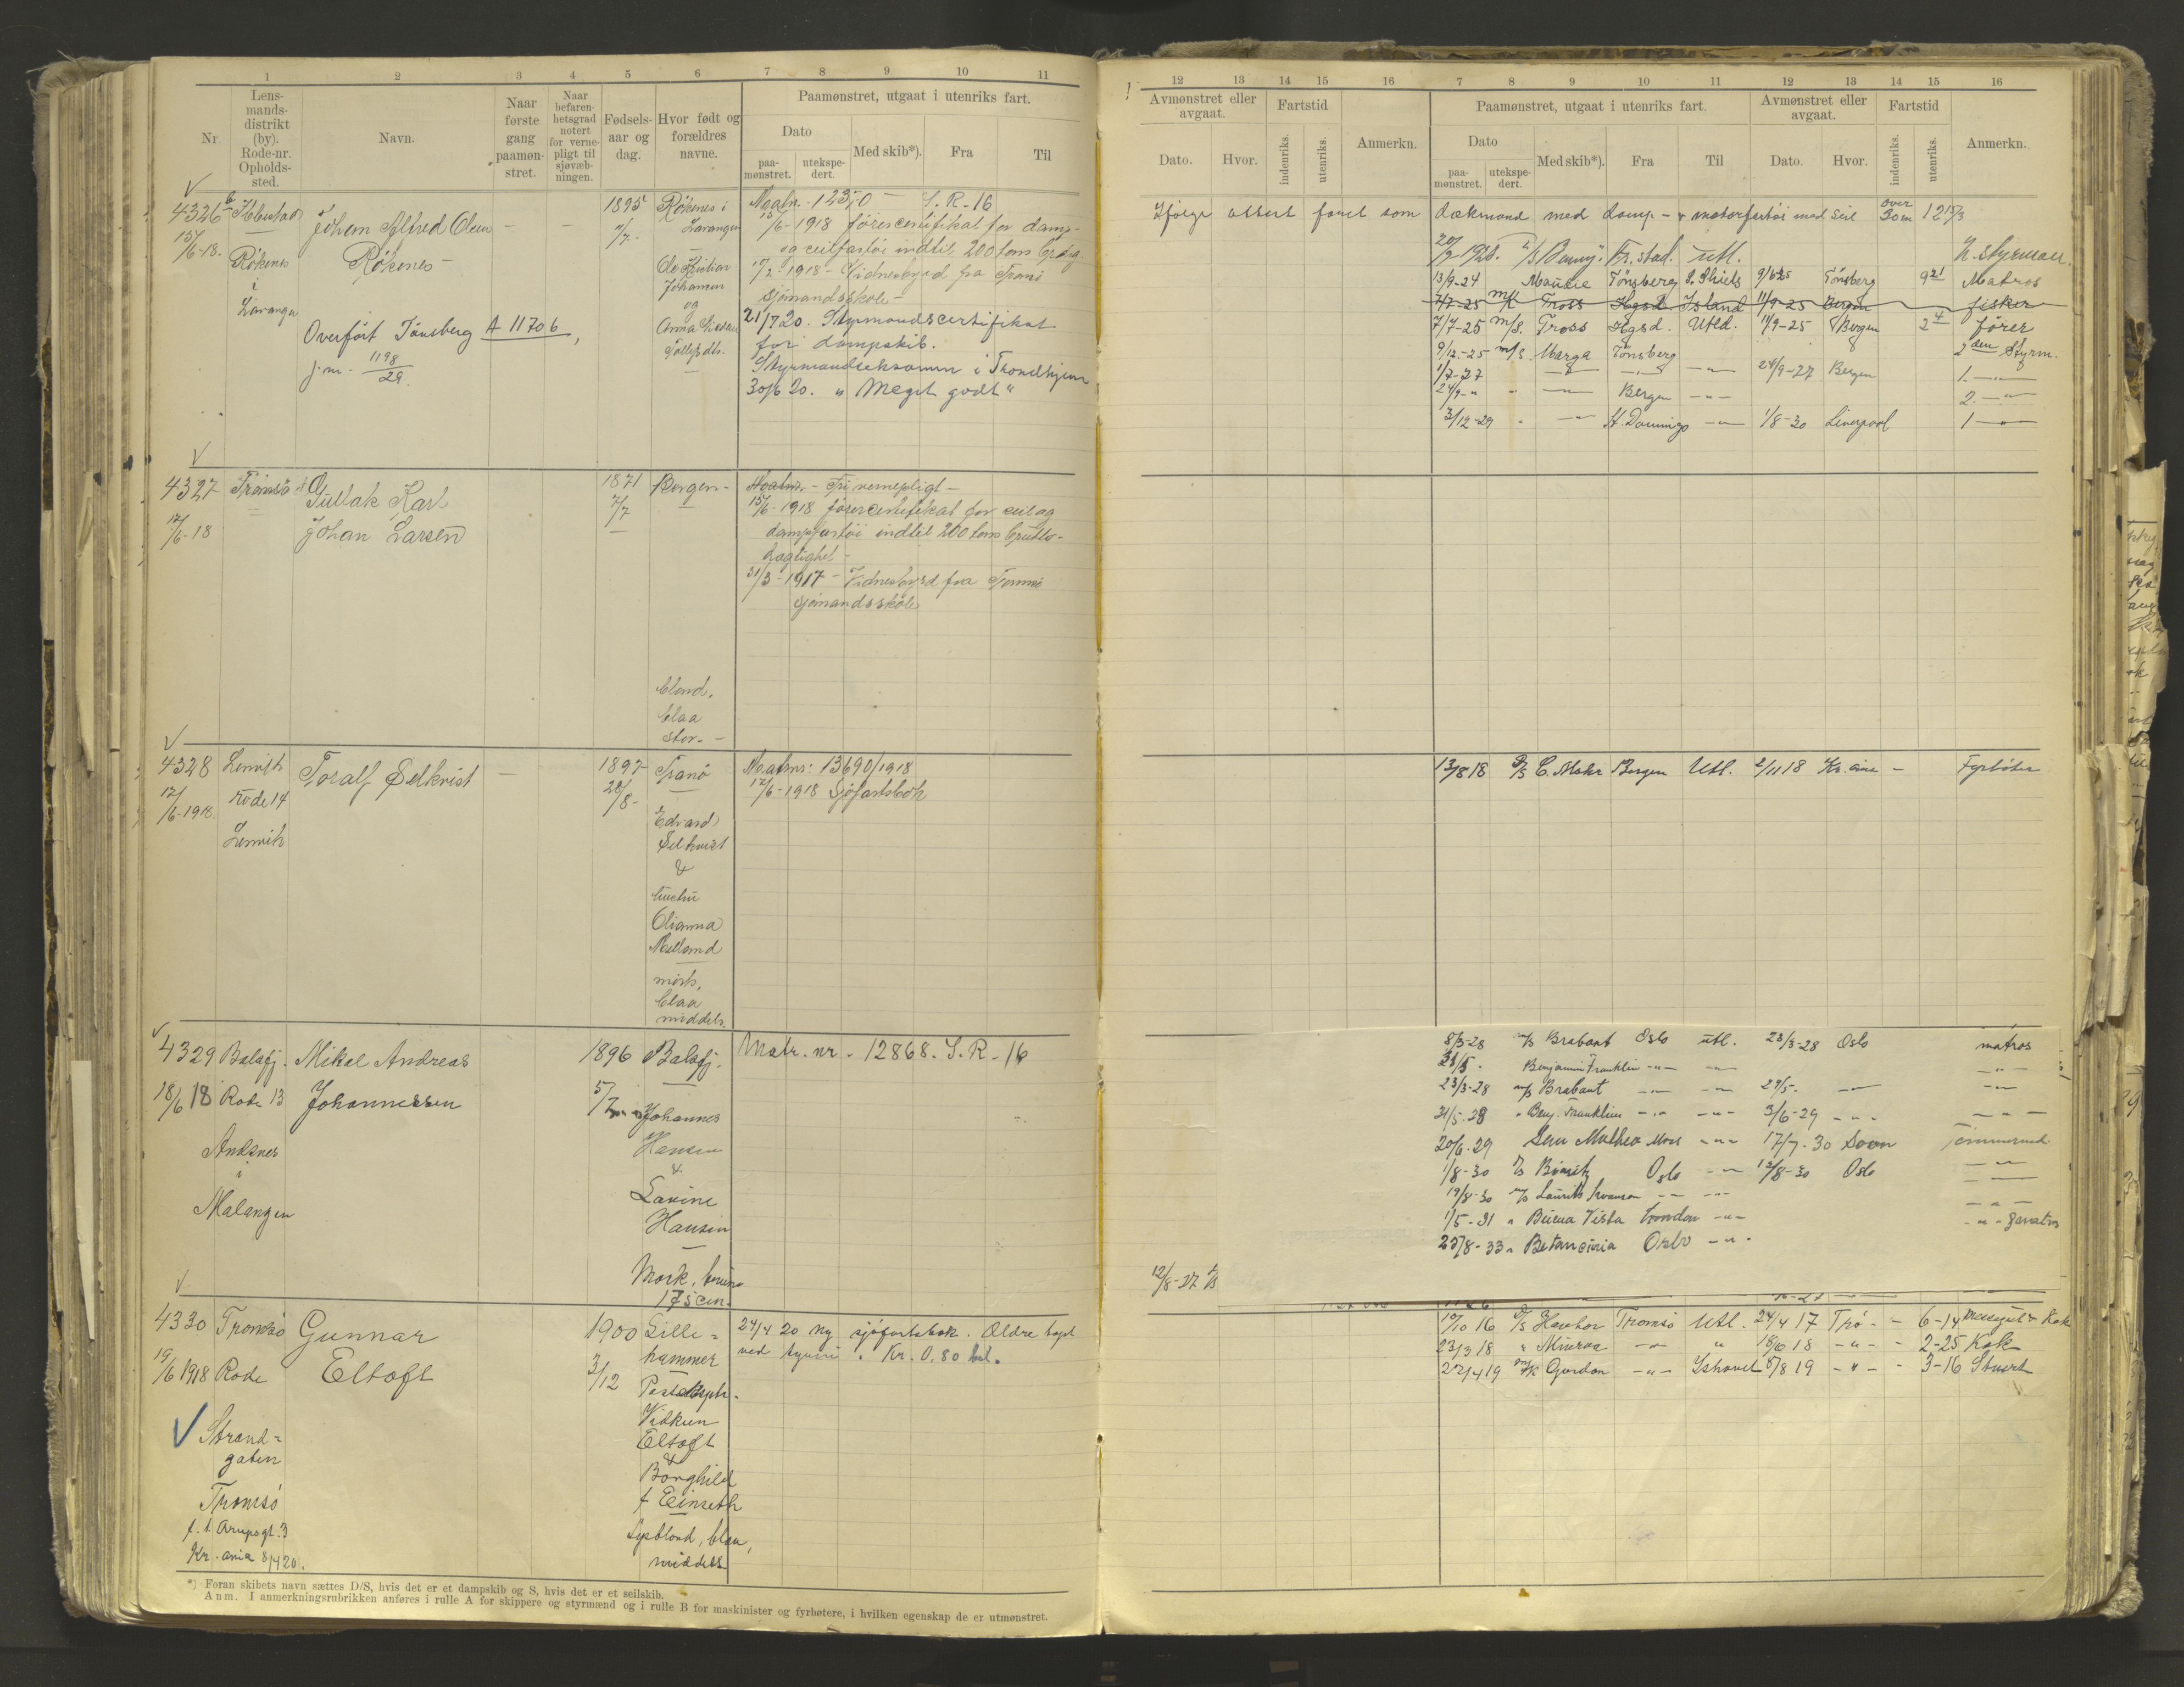 1 2 3 4 5 6 7 8 9 10 11
Nr.
Lens-
mands-
distrikt
(by).
Rode-nr.
Opholds-
sted.
Navn.
Naar
første
gang
paamøn-
stret.
Naar
befaren-
hetsgrad
notert
for verne-
pligt til
sjøvæb-
ningen.
Fødsels-
aar og
dag.
Hvor født og
forældres
navne.
Paamønstret, utgaat i utenriks fart.
Dato
paa-
mønstret.
utekspe-
dert.
Med skib*).
Fra
Til
4326
15/6-18.
Rökenes
i
Lavangen
Johan Alfred Olsen
Rökenes
Overført Tönsberg A 11706
j.nr. 1198/29.
1895
Rökenes i
Lavangen
Ole Kristian
Johansen
og
Anna
S. R. 16
15/6-1918 förercertifikat for damp-
og seilfartöi indtil 200 tons
1918 - Vidnesbyrd fra Tranö
sjömandsskole-
21/7 20. Styrmandscertifikat
for dampskib.
Styrmandseksamen i Trondhjem
30/6 20. "Meget godt"
4327
17/6-18
Tromsö
Gullak Karl
Johan Larsen
1871
7/7
Bergen
Fri vernepligt -
15/6-1918 förercertifikat for seil og
dampfartöi indtil 200 tons brutto-
31/3-1917 - Vidnesbyrd fra Tromsö
sjömandsskole
blond,
blaa
stor. -
4328
17/6-1918.
Lenvik
Rode 14
Lenvik
Toralf Selkvist
1897
28/8-
Tranö
Edvard
Selkvist
&
hustru
Olianna
mörk,
blaa
middels.
13690/1918
17/6-1918 Sjöfartsbok
4329
18/6 18
Balsfj.
Rode 13
Ankenes
i
Malangen
Mikal Andreas
Johannessen
1896
5/7
Balsfj.
Johannes
Hansen
&
Lavine
Hansen
Mørk, brune
175 cm.
Matr. nr. 12868. S. R. 16
4330
19/6 1918
Tromsö
Rode
Strand-
gaten
Tromsö
f. t. Arupsgt. 3
Kr.ania 8/4 20.
Gunnar
Eltoft
1900
3/12
Lille-
hammer
Vidkun
Eltoft
&
Borghild
f. Einseth
Lysblond, blaa,
middels
24/4 20 ny sjöfartsbok. Ældre tapt
ved tyveri. Kr. 0,80 bet.
*) Foran skibets navn sættes D/S, hvis det er et dampskib og S, hvis det er et seilskib.
Anm. I anmerkningsrubrikken anføres i rulle A for skippere og styrmænd og i rulle B for maskinister og fyrbøtere, i hvilken egenskap de er utmønstret.
12 13 14 15 16 7 8 9 10 11 12 13 14 15 16
Avmønstret eller
avgaat.
Dato.
Hvor.
Fartstid
indenriks.
utenriks.
Anmerkn.
Paamønstret, utgaat i utenriks fart.
Dato
paa-
mønstret.
utekspe-
dert.
Med skib*).
Fra
Til
Avmønstret eller
avgaat.
Dato.
Hvor.
Fartstid
indenriks.
utenriks.
Anmerkn.
Ifölge attest faret som dæksmand med damp- & motorfartöi med seil over 30 m
Fr.stad. Utl. 2. styrmand.
13/9-24 Maudie Tönsberg S. Shiels 9/6 25 Tönsberg 9 21 Matros
7/7-25 m/k Tross Hgsd. Island 11/9-25 Bergen fisker
7/7-25 m/s. Tross Hgsd. Utld. 11/9-25 Bergen 2 4 förer
9/12-25 m/s Marga Tönsberg 2den Styrm.
1/7-27 24/9-27 Bergen 1. -"-
24/9-" Bergen -"- 2. -"-
3/12-29 St. Domingo -"- 1/8-30 Liverpool 1 -"-
13/8 18 D/S C. Mohr Bergen Utl. 2/11 18 Kr.ania - Fyrböter
8/3-28 m/s Brabant Oslo utl. 23/3-28 Oslo matros
Benjamin Franklin -"- -"- -"-
23/3-28 m/s Brabant -"- -"- 29/5- -"- -"-
31/5-28 " Benj. Franklin -"- -"- 3/6-29 -"- -"-
20/6-29 San Matheo Moss -"- 17/7-30 Tömmermd.
1/8-30 Oslo -"- 12/8-30 Oslo -"-
19/8-30 m/s -"- -"- -"-
1/5-31 " Buena Vista London -"- -"-
25/8-33 " Betancuria Oslo -"-
12/8-27
10/10 16 D/S Haukor Tromsö Utl. 24/4 17 Trö. - 6-14 Kok
23/3 18 " Minerva -"- " 18/6 18 -"- - 2-25 Kok
22/4 19 m/k Gordon -"- Ishavet 8/8 19 -"- - 3-16 Stuert